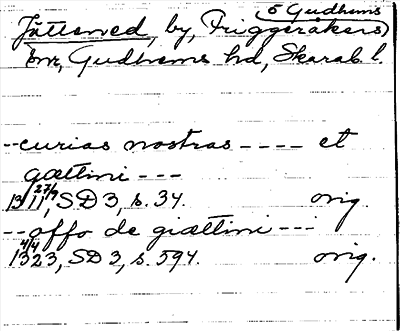 5 Gudhems
Jättened, by, Friggeråkers
sn, Gudhems hd, Skarab. l.
-- curias nostras ---- et
gættini ---
13 27/9 11, SD 3, s. 34. orig.
-- offo de giættini ---
13 4/4 23, SD 3, s. 594. orig.